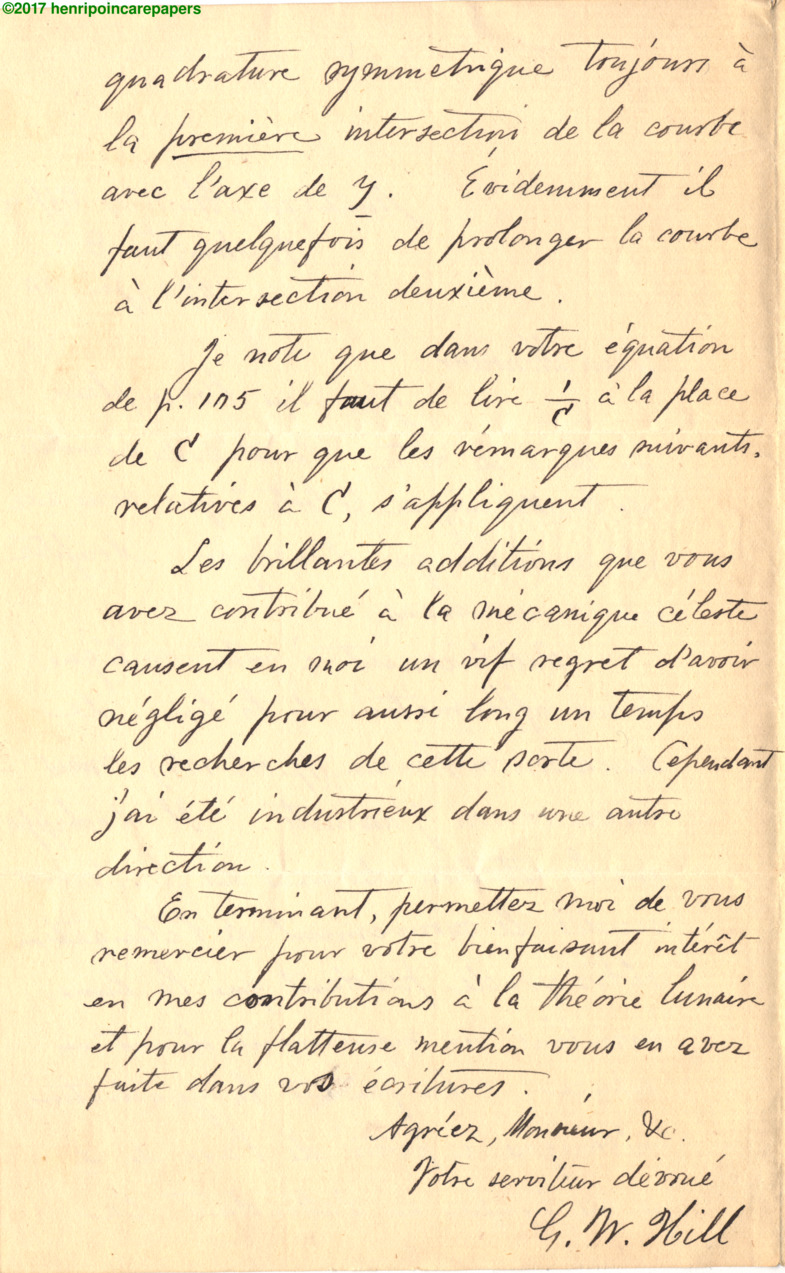 ©2017 henripoincarepapers
quadrature symmetrique toujours à
la première intersection de la courbe
avec l'axe de y. Évidemment il
faut quelquefois de prolonger la courbe
à l'intersection deuxième.
Je note que dans votre équation
de p. 105 il faut de lire 1/C à la place
de C pour que les rémarques suivants,
relatives à C, s'appliquent.
Les brillantes additions que vous
avez contribué à la mécanique céleste
causent en moi un vif regret d'avoir
négligé pour aussi long un temps
les recherches de cette sorte. Cependant
j'ai été industrieux dans une autre
direction.
En terminant, permettez moi de vous
remercier pour votre bienfaisant intérêt
en mes contributions à la théorie lunaire
et pour la flatteuse mention vous en avez
faite dans vos écritures.
Agréez, Monsieur, &c.
Votre serviteur dévoué
G. W. Hill